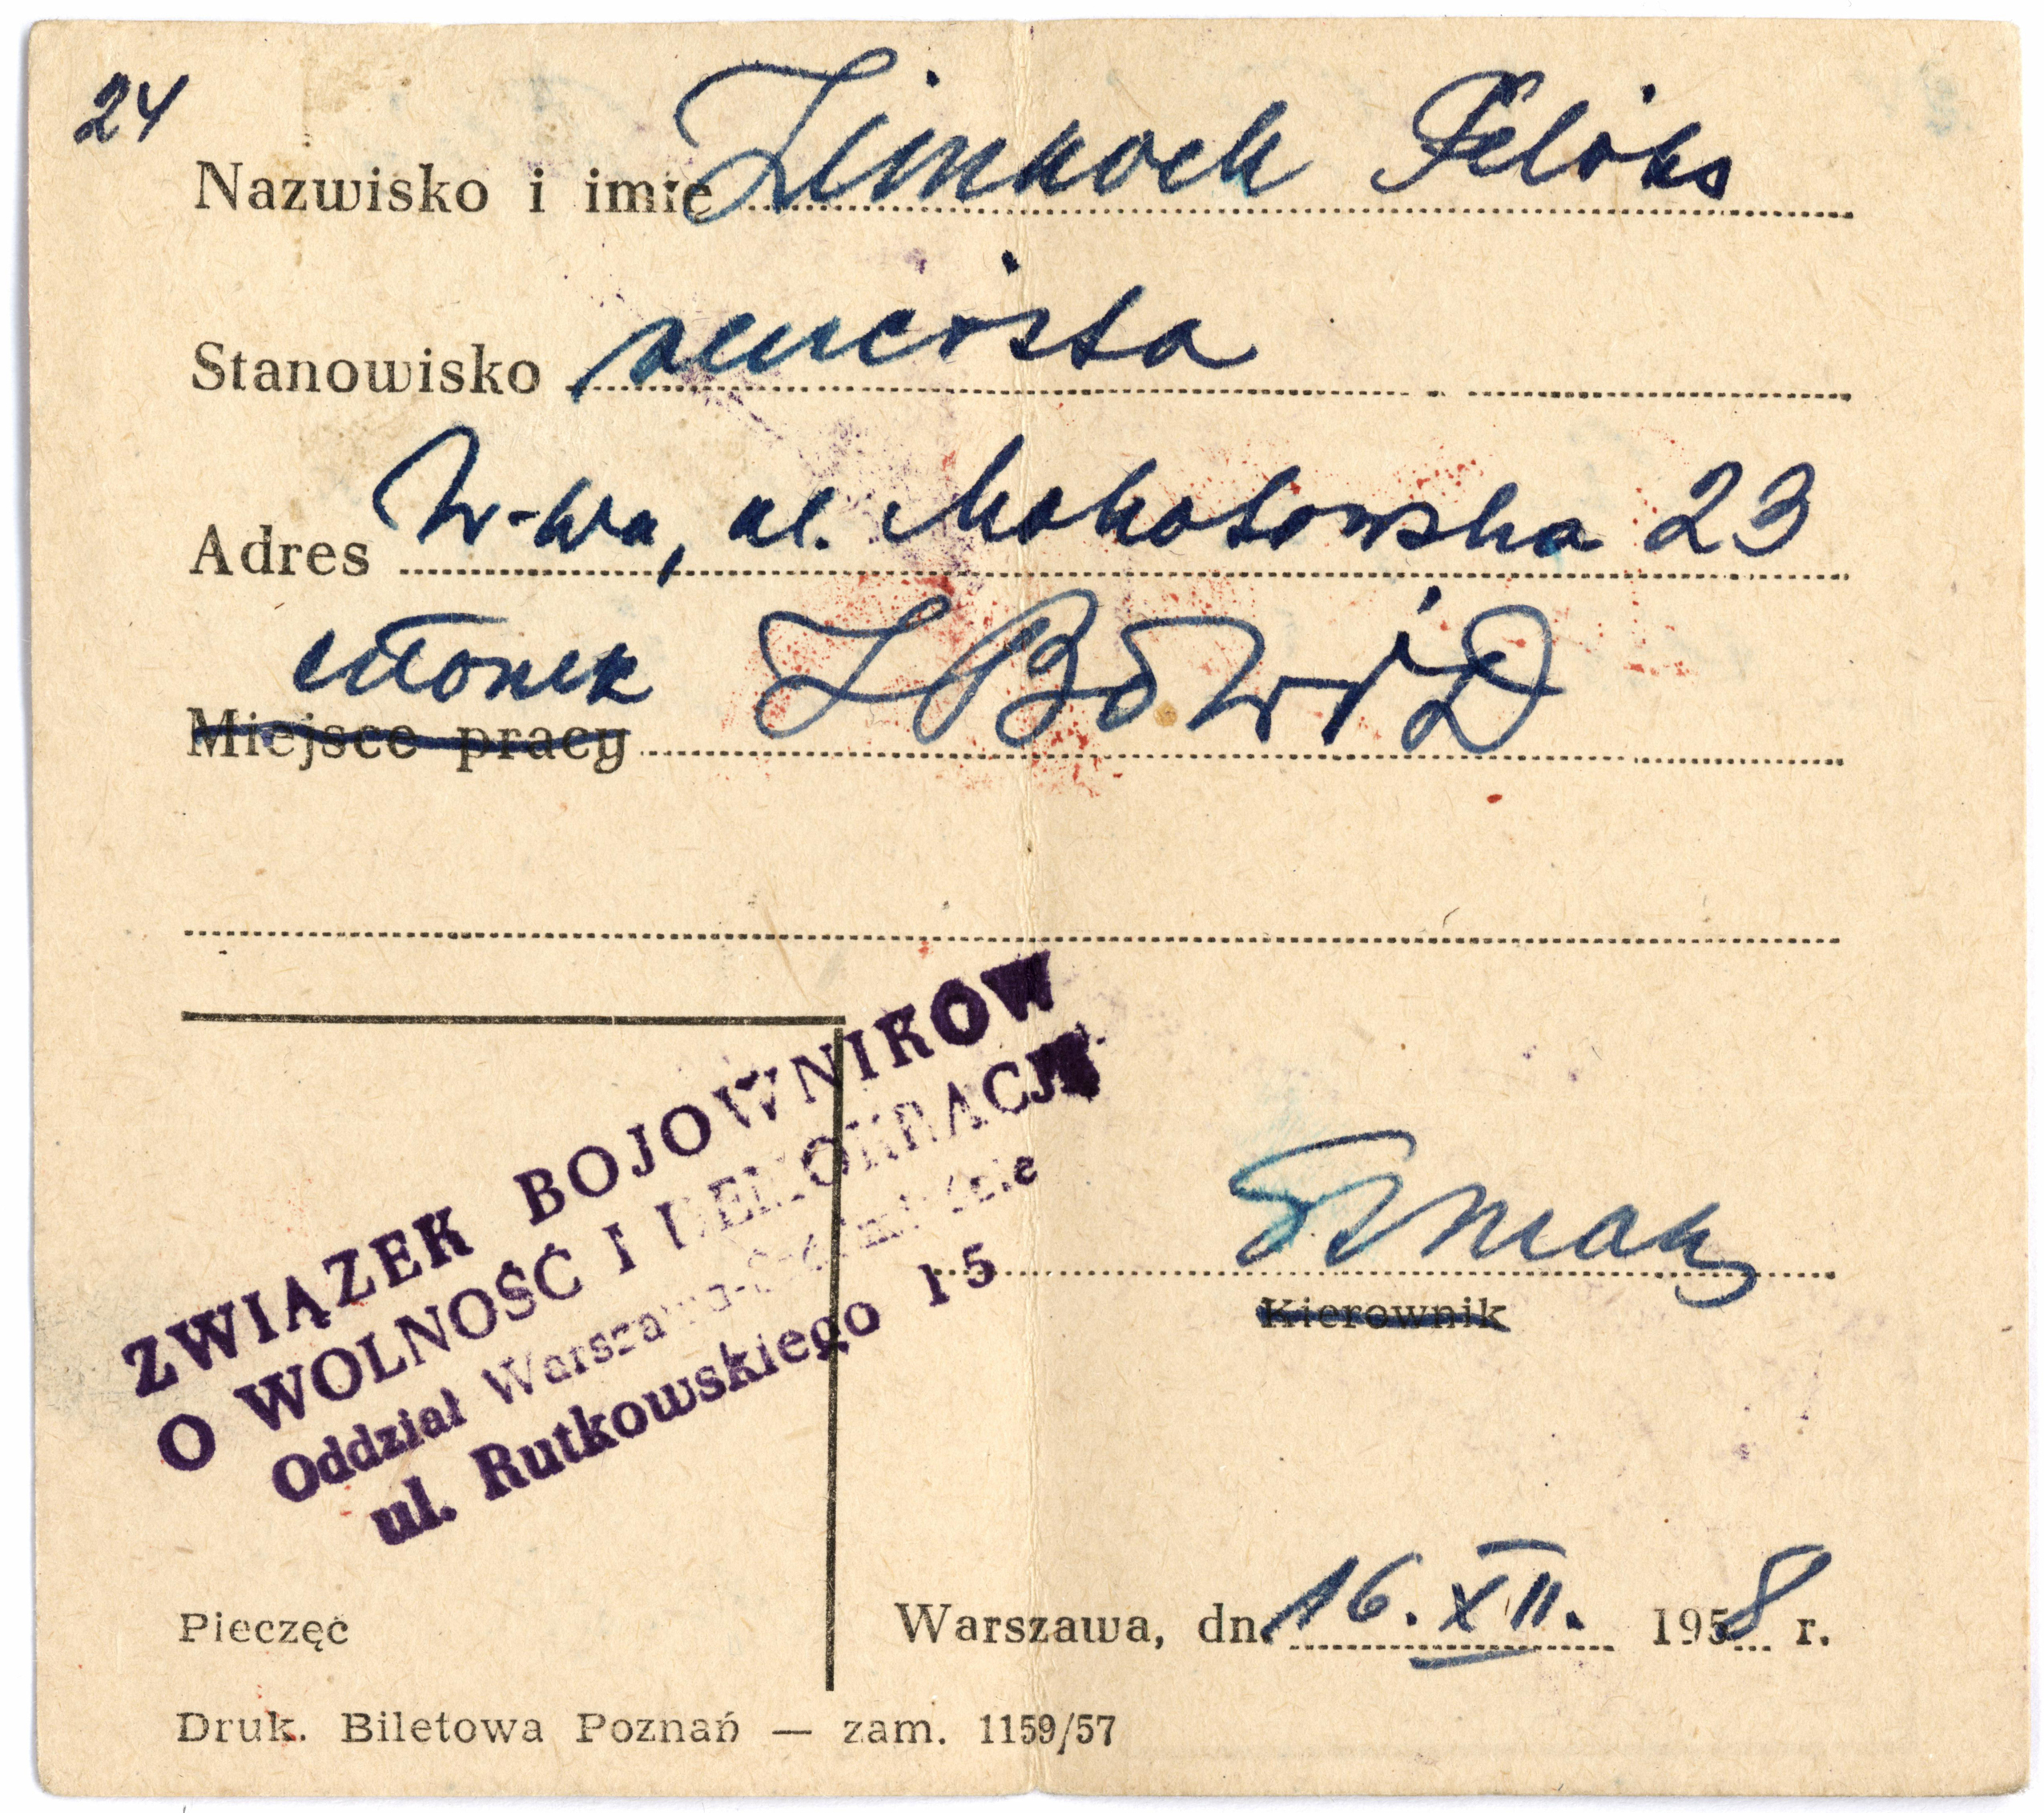 24
Nazwisko i imię Zimnoch Feliks
Stanowisko rencista
Adres W-wa, ul. Mokotowska 23
członek ZBoWiD
Miejsce pracy
ZWIĄZEK BOJOWNIKÓW
O WOLNOŚĆ I DEMOKRACJĘ
Oddział Warszawa-Śródmieście
ul. Rutkowskiego 15
Kierownik
Pieczęć
Warszawa, dn. 16. XII. 1958 r.
Druk. Biletowa Poznań — zam. 1159/57